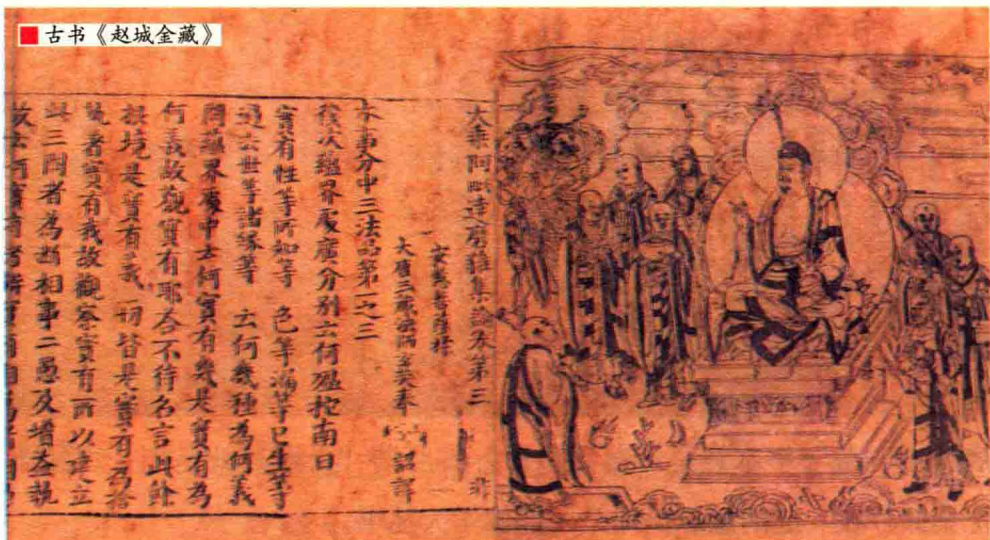 古书《赵城金藏》
大乘阿毗達磨雜集論卷第三
安慧菩薩糅
大唐三藏法師玄奘奉 詔譯
本事分中三法品第一之三
復次蘊界處廣分別云何嗢拕南曰
實有性等所知等 色等漏等已生等
過去世等諸緣等 云何幾種為何義
問蘊界處中云何實有幾是實有為
何義故觀實有耶答不待名言此餘
根境是實有義一切皆是實有為捨
執著實有我故觀察實有所以建立
此三問者為斷相事二愚及增益執
故云何實有